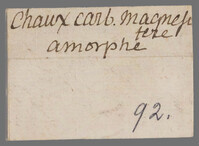 Chaux carb. magnesi
fere
amorphe
92.